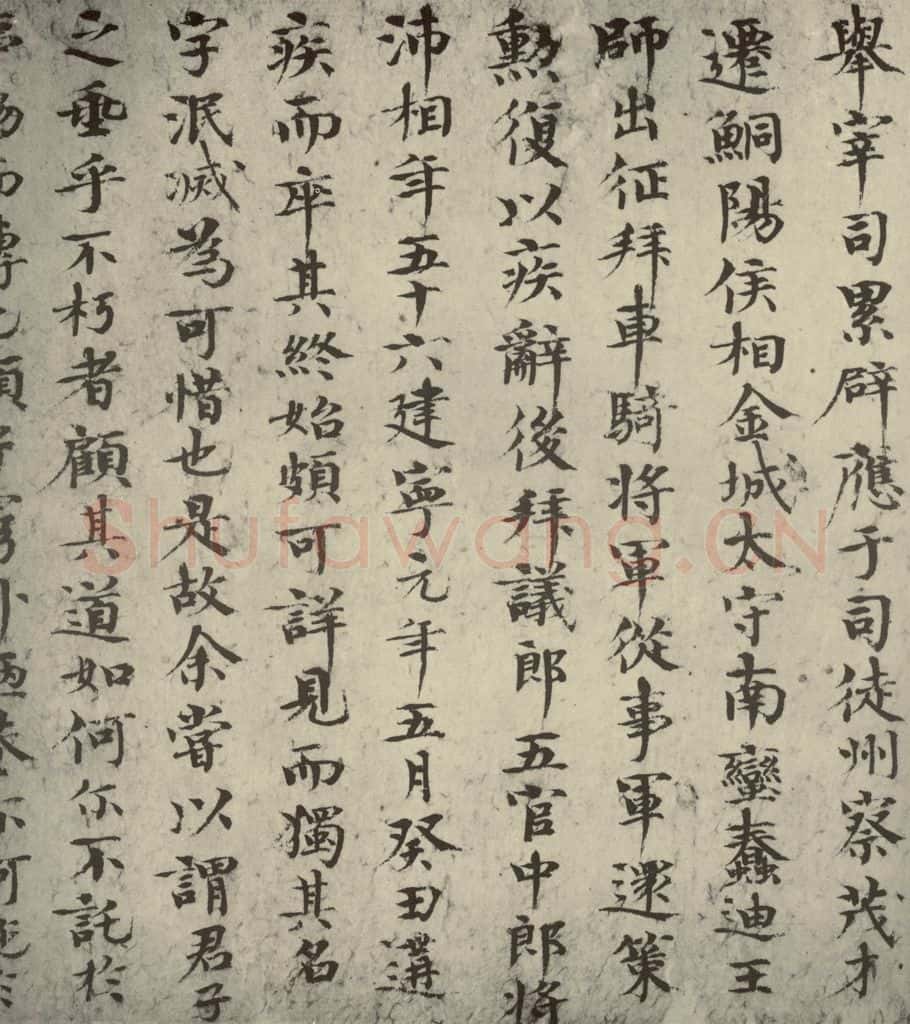 舉宰司累辟應于司徒州察茂才
遷鮦陽侯相金城太守南蠻蠢迪王
師出征拜車騎將軍從事軍還策
勲復以疾辭後拜議郎五官中郎將
沛相年五十六建寧元年五月癸田遘
疾而卒其終始頗可詳見而獨其名
字泯滅為可惜也是故余嘗以謂君子
之垂乎不朽者顧其道如何尔不託於
而傳也顔
Shufawang.CN